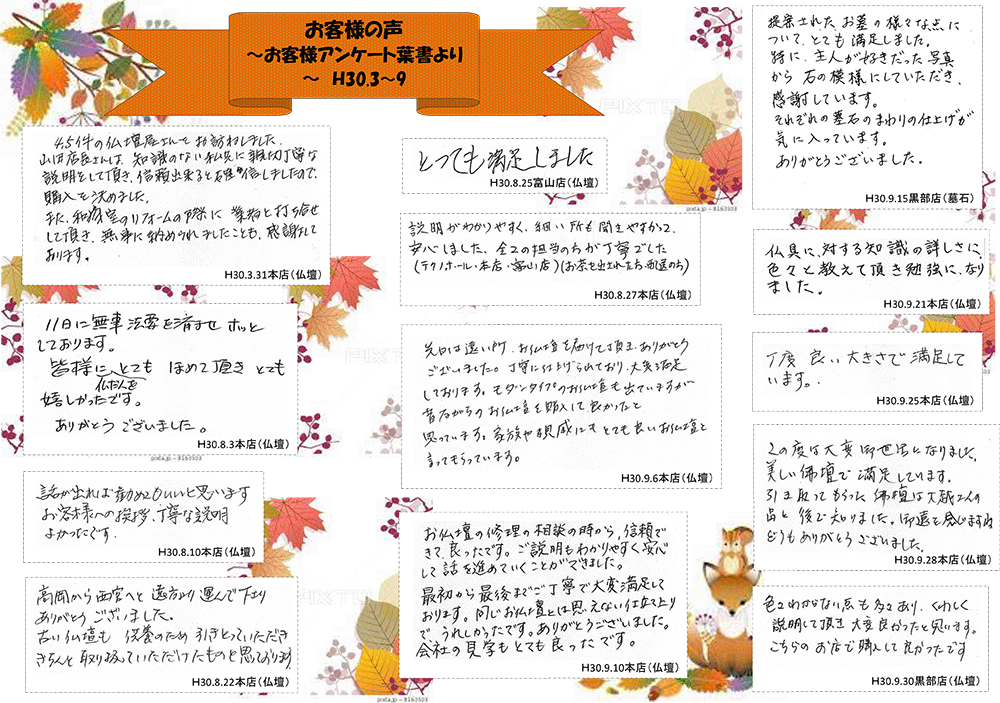 お客様の声
～お客様アンケート葉書より
～ H30.3～9
4.5件の仏壇屋さんをお訪ねしました。
山田店長さんは、知識のない私共に親切丁寧な
説明をして頂き、信頼出来ると確信しましたので
購入を決めました。
また、和室のリフォームの際に業者と打合せ
して頂き、無事に納められましたことも、感謝して
おります。
H30.3.31本店（仏壇）
11日に無事法要を済ませホッと
しております。
皆様に、とても ほめて頂き とても
仏だんを
嬉しかったです。
ありがとうございました。
H30.8.3本店（仏壇）
話が出れば勧めてもいいと思います
お客様への挨拶、丁寧な説明
よかったです．
H30.8.10本店（仏壇）
高岡から西宮へと遠方より運んで下さり
ありがとうございました。
古い仏壇も 供養のため引きとっていただき
きちんと取り扱っていただけたものと思っております
H30.8.22本店（仏壇）
とっても満足しました
H30.8.25富山店（仏壇）
説明がわかりやすく、細い所も聞きやすかって、
安心しました、全ての担当の方が丁寧でした
(テクノホール・本店・富山店)(お茶を出された方、配送の方)
H30.8.27本店（仏壇）
先日は遠い所、お仏壇を届けて頂き、ありがとう
ございました。丁寧に仕上げられており、大変満足
しております。モダンタイプのお仏壇も出ていますが
昔ながらのお仏壇を購入して良かったと
思っています。家族や親戚にもとても良いお仏壇と
言ってもらっています。
H30.9.6本店（仏壇）
お仏壇の修理の相談の時から、信頼で
きて良かったです。ご説明もわかりやすく安心
して話を進めていくことができました。
最初から最後までご丁寧で大変満足して
おります。同じお仏壇とは思えない仕立て上り
で、うれしかったです。ありがとうございました。
会社の見学もとても良ったです。
H30.9.10本店（仏壇）
提案された、お墓の様々な点に
ついて、とても満足しました。
特に、主人が好きだった写真
から石の模様にしていただき、
感謝しています。
それぞれの墓石のまわりの仕上げが
気に入っています。
ありがとうございました。
H30.9.15黒部店（墓石）
仏具に対する知識の詳しさに、
色々と教えて頂き勉強になり
ました。
H30.9.21本店（仏壇）
丁度良い大きさで満足して
います。
H30.9.25本店（仏壇）
この度は大変御世話になりました。
美しい佛壇で満足しています。
引き取ってもらった佛壇は大蔵さんの
品と後で知りました。御縁と感じます
どうもありがとうございました。
H30.9.28本店（仏壇）
色々わからない点も多々あり、くわしく
説明して頂き大変良かったと思います。
こちらのお店で購入して良かったです
H30.9.30黒部店（仏壇）